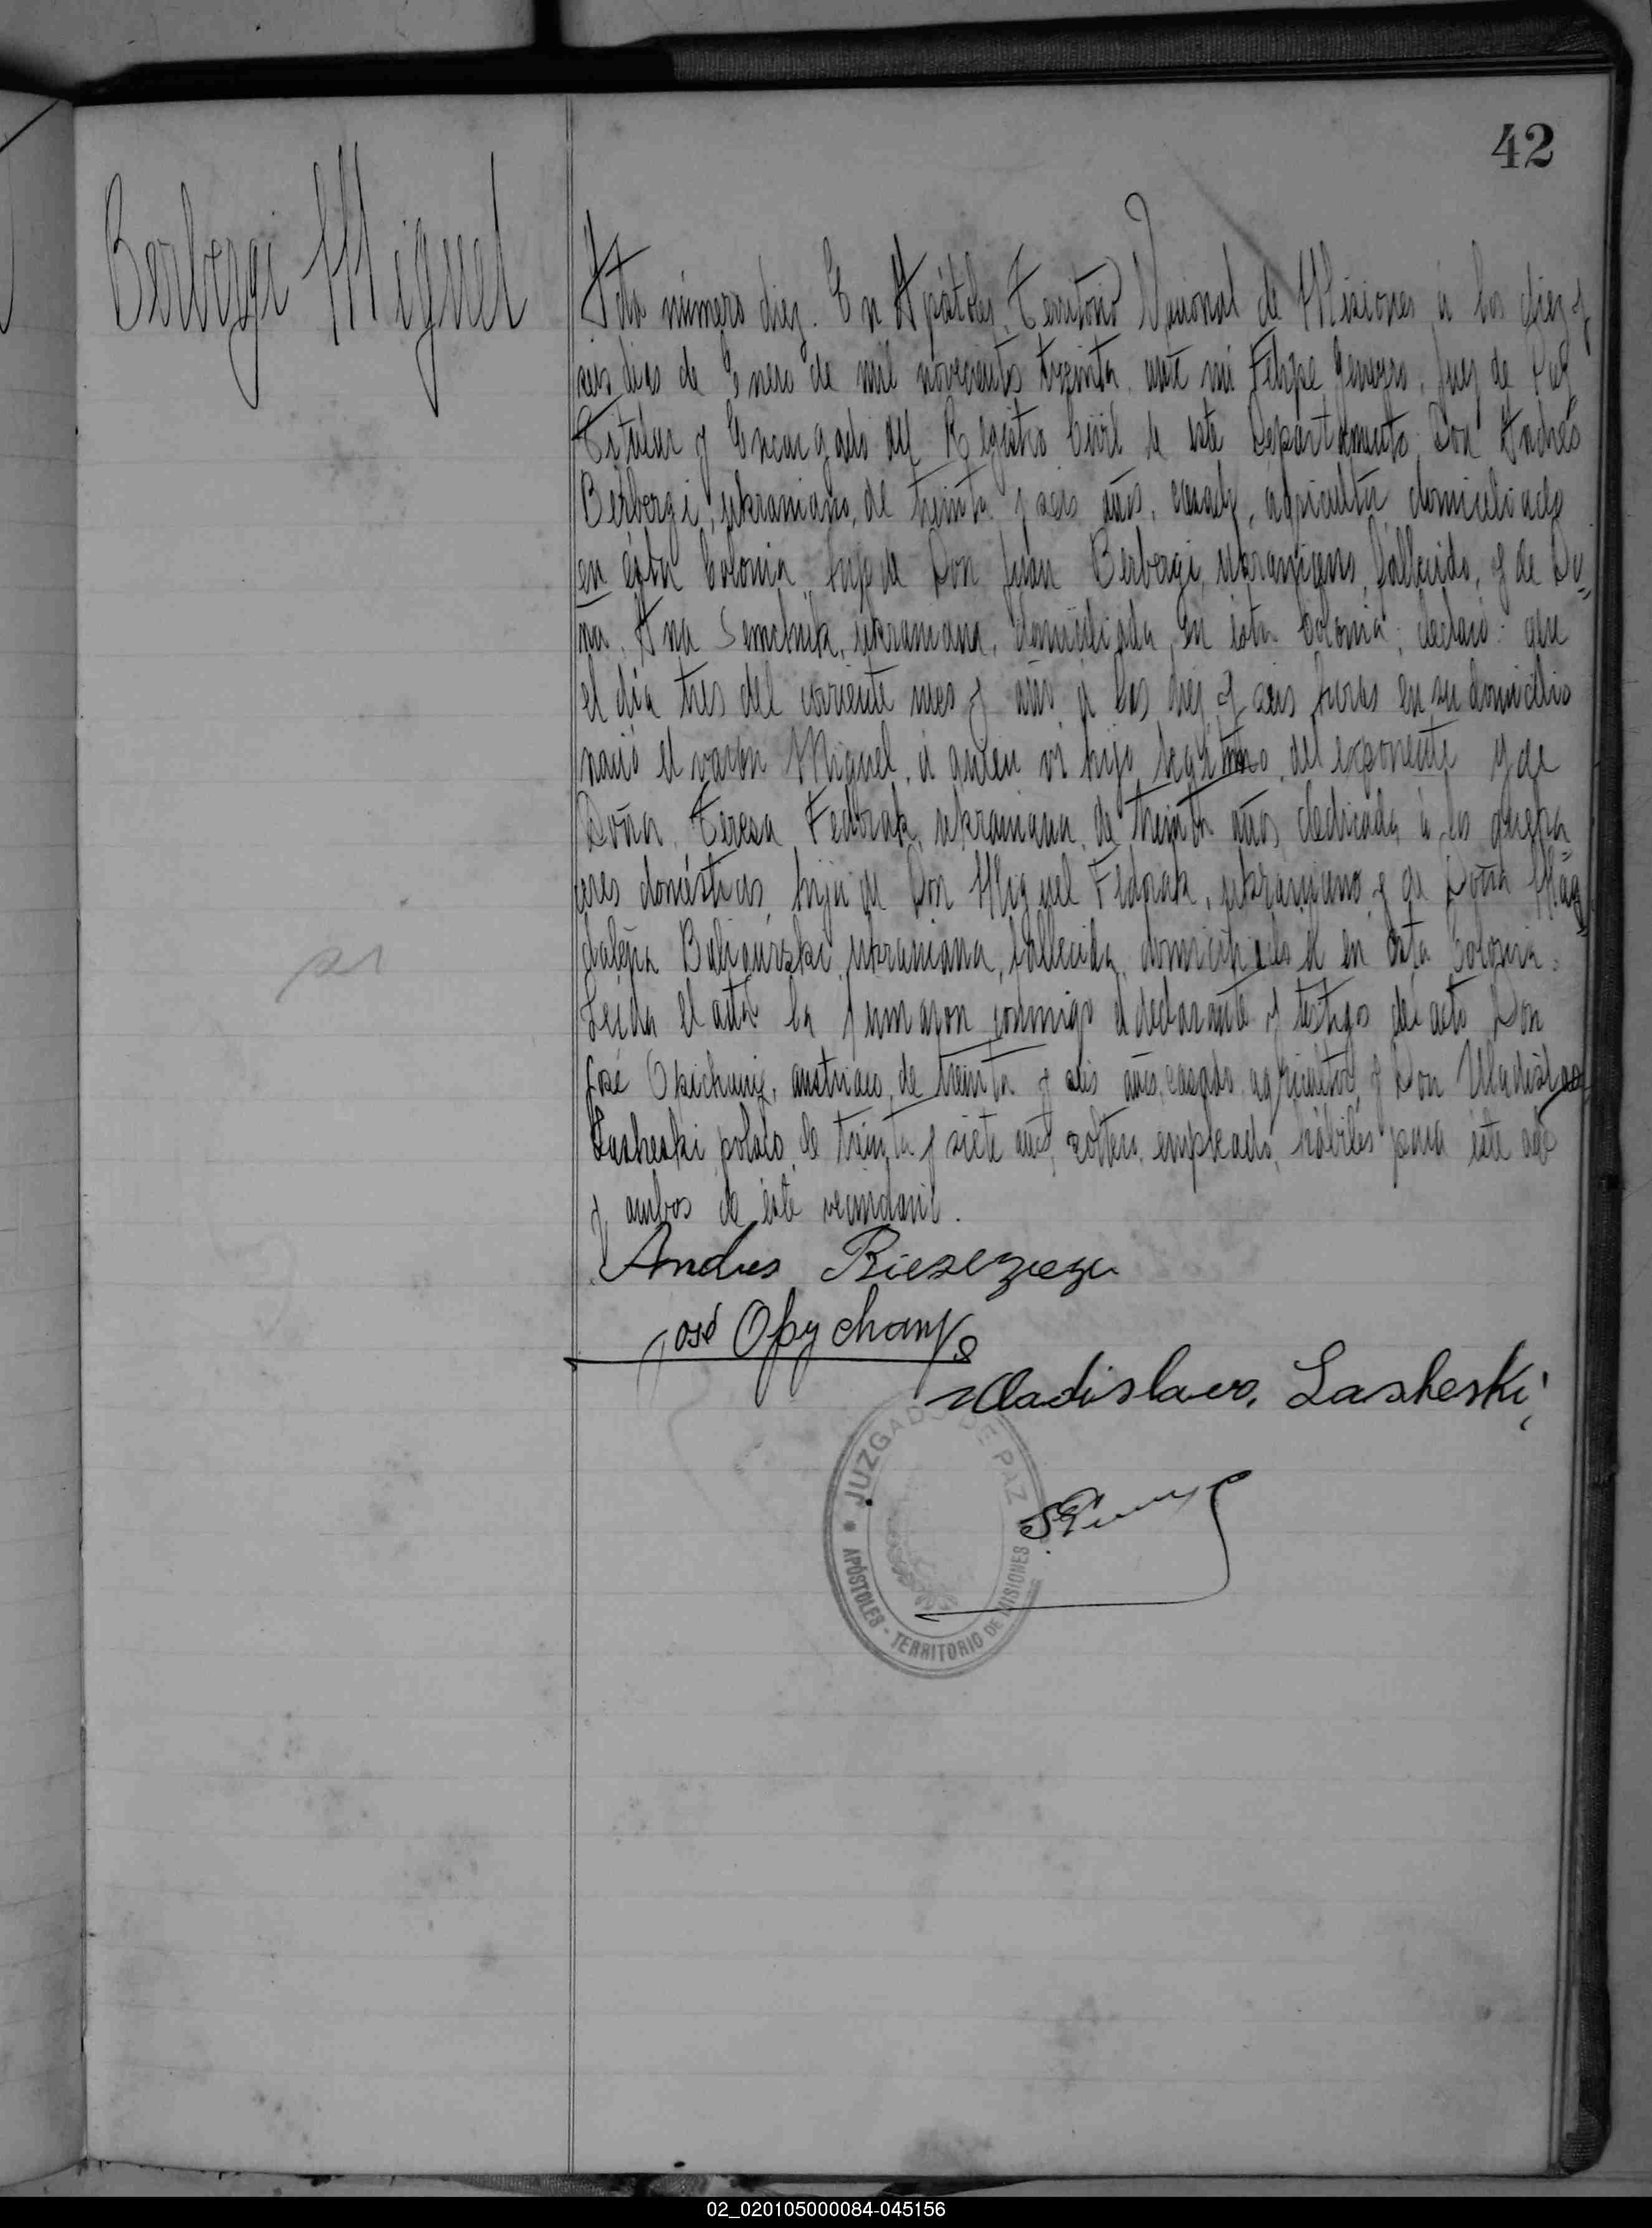 42
Berbezgi Miguel
Acta número diez. En Apóstoles, Territorio Nacional de Misiones, á los diez y
seis dias de Enero de mil novecientos treinta, ante mi Felipe, Juez de Paz
Titular y Encargado del Registro Civil de este Departamento, Don Andrés
Berbezgi, ukraniano, de treinta y seis años, casado, agricultor, domiciliado
en ésta Colonia, hijo de Don Juán Berbezgi, ukraniano, fallecido, y de Do-
ña Ana Semchuk, ukraniana, domiciliada en ésta Colonia; declaró: que
el día tres del corriente mes y año á las diez y seis horas en su domicilio
nació el varón Miguel, á quien ví hijo legítimo del exponente y de
Doña Teresa Fedorak, ukraniana, de treinta años, dedicada á los queha-
ceres domésticos, hija de Don Miguel Fedorak, ukraniano y de Doña Mag-
dalena, ukraniana, fallecida, domiciliado él en ésta Colonia.
Leída el acta la firmaron conmigo el declarante y testigos del acto Don
José, austriaco, de treinta y seis años, casado, agricultor y Don Uladislao
Lasheski, polaco, de treinta y siete años, soltero, empleado, hábiles para éste acto
y ambos de éste vecindario.
Andres
José Opychany
Uladislavo Lasheski
JUZGADO DE PAZ
APÓSTOLES - TERRITORIO DE MISIONES
02_020105000084-045156